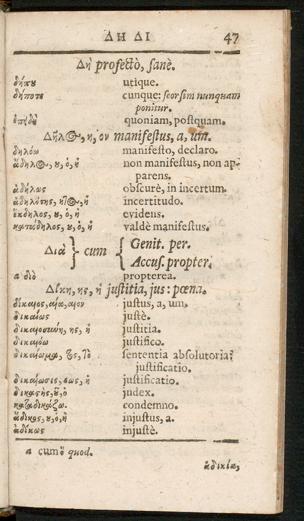 ΔΗ ΔΙ 47
Δὴ profectò, sanè.
δήπου utique.
δήποτε cunque: seorsim nunquam
ponitur.
ἐπειδὴ quoniam, postquam.
Δῆλος, η, ον manifestus, a, um.
δηλόω manifesto, declaro.
ἄδηλος, ου, ὁ, ἡ non manifestus, non ap-
parens.
ἀδήλως obscurè, in incertum.
ἀδηλότης, ητος, ἡ incertitudo.
ἔκδηλος, ου, ὁ, ἡ evidens.
κατάδηλος, ου, ὁ, ἡ valdè manifestus.
Διὰ } cum { Genit. per.
Accus. propter.
a διὸ propterea.
Δίκη, ης, ἡ justitia, jus: pœna.
δίκαιος, αία, αιον justus, a, um.
δικαίως justè.
δικαιοσύνη, ης, ἡ justitia.
δικαιόω justifico.
δικαίωμα, τος, τὸ sententia absolutoria?
justificatio.
δικαίωσις, εως, ἡ justificatio.
δικαστής, οῦ, ὁ judex.
καταδικάζω. condemno.
ἄδικος, ου, ὁ, ἡ injustus, a.
ἀδίκως injustè.
a cum ὃ quod.
ἀδικία,